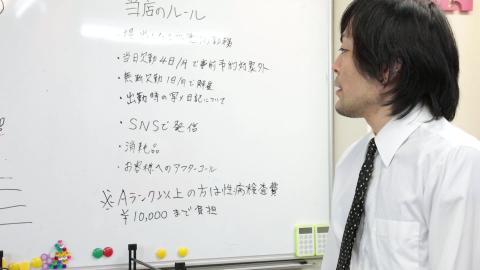 当店のルール
・当日欠勤4日/月で事前予約対象外
・無断欠勤1日/月で解雇
・出勤時の写メ日記について
・SNSで発信
・消耗品
・お客様へのアフターコール
※Aランク以上の方は性病検査費
¥10,000まで負担